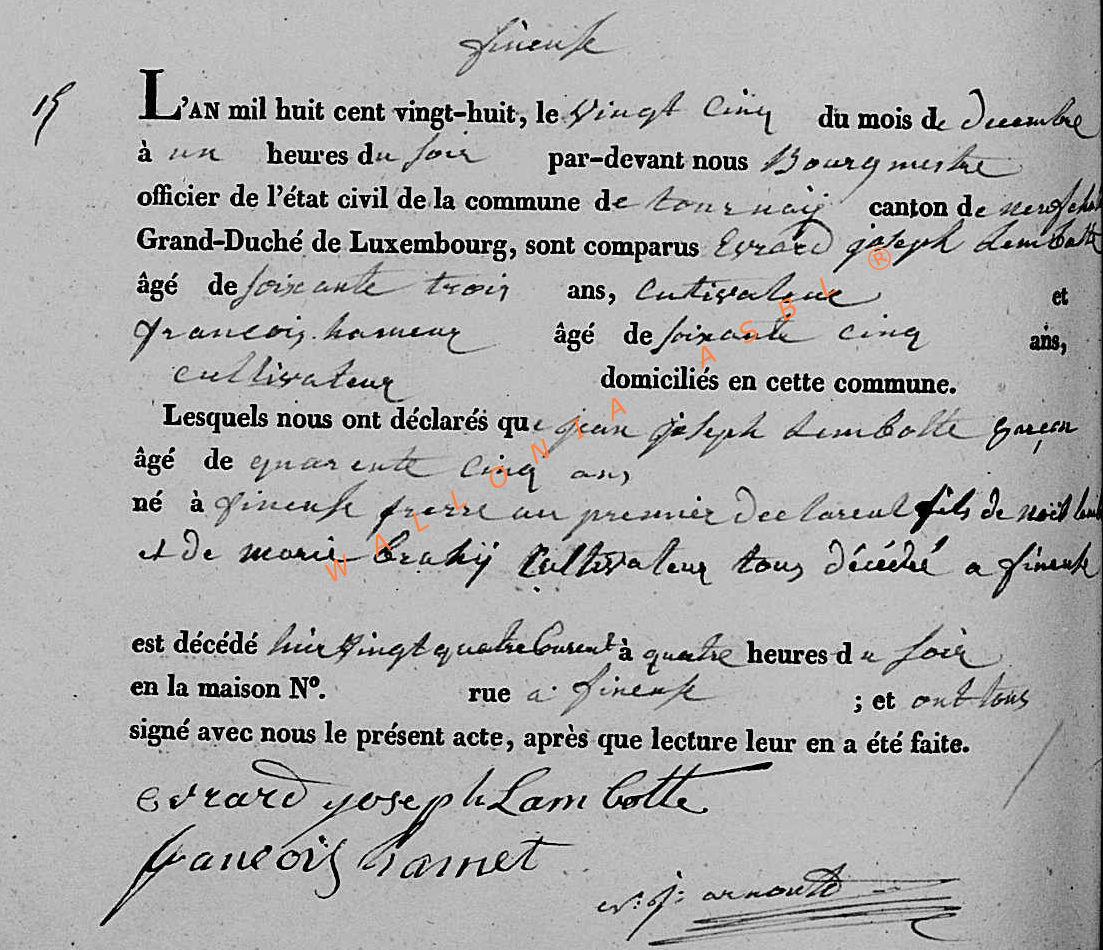 fineuse
15
L'AN mil huit cent vingt-huit, le vingt cinq du mois de decembre
à un heures du soir par-devant nous Bourgmestre
officier de l'état civil de la commune de tournay canton de
Grand-Duché de Luxembourg, sont comparus Evrard joseph Lambotte
âgé de soixante trois ans, cutivateur et
francois hameur âgé de soixante cinq ans,
cultivateur domiciliés en cette commune.
Lesquels nous ont déclarés que jean joseph Lambotte garçon
âgé de quarente cinq ans
né à fineuse frerre au premier declareut fils de noel
et de marie cultivateur tous décédé a fineuse
est décédé hier vingt quatre Courent à quatre heures du soir
en la maison N°. rue a fineuse ; et ont tous
signé avec nous le présent acte, après que lecture leur en a été faite.
evrard joseph Lambotte
francois hamet
arnould
WALLONIA ASBL ®